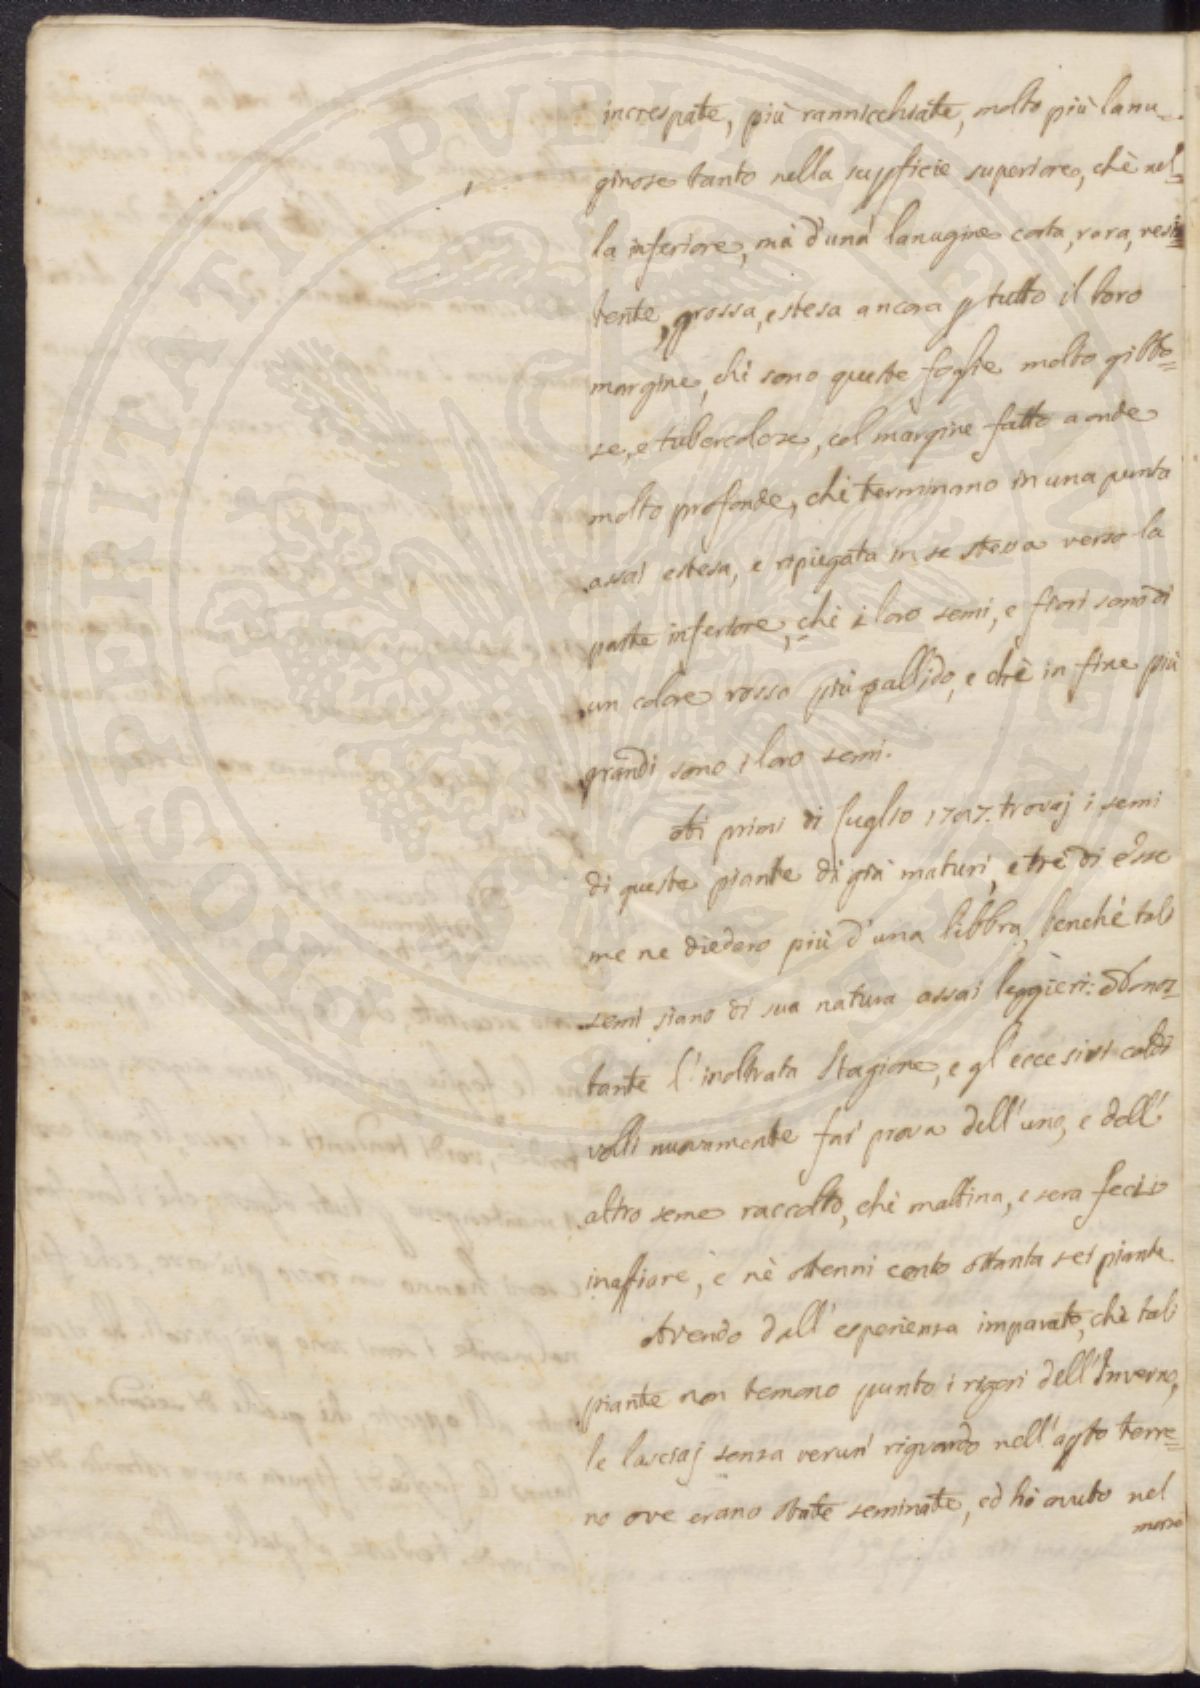 increspate, più rannicchiate, molto più lanu-
ginose tanto nella suppficie superiore, chè nel=
la inferiore, mà d'una lanugine corta, rara, resis=
tente, grossa, estesa ancora p tutto il loro
margine, chè sono queste foglie molto gibbo=
se, e tubercolose, col margine fatto a onde
molto profonde, chè terminano in una punta
assai estesa, e ripiegata in se stessa verso la
parte inferiore, chè i loro semi, e fiori sono di
un colore rosso più pallido, e chè in fine più
grandi sono i loro semi.
Ai primi di Luglio 1797. trovaj i semi
di queste piante di già maturi, e trè di esse
me ne diedero più d'una libbra, benchè tali
semi siano di sua natura assai leggieri: Non os=
tante l'inoltrata Stagione, e gl'eccesivi caldi
volli nuovamente far prova dell'uno, e dell'
altro seme raccolto, chè mattina, e sera feci
inaffiare, e nè ottenni cento ottanta sei piante
Avendo dall'esperienza imparato, chè tali
piante non temono punto i rigori dell'Inverno,
le lasciaj senza verun riguardo nell'apto terre=
no ove erano state seminate, ed hò avuto nel
marzo
PROSPERITATI PVBLICAE